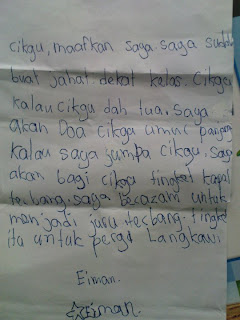 cikgu, maafkan saya. saya sudah
buat jahat. dekat kelas. Cikgu
kalau cikgu dah tua, saya
akan Doa cikgu umur panjang
kalau saya jumpa cikgu, saya
akan bagi cikgu tingkat kapal
terbang. saya berazam untuk
menjadi juru terbang. tingkat
itu untuk pergi Langkawi
Eiman.
Eiman.